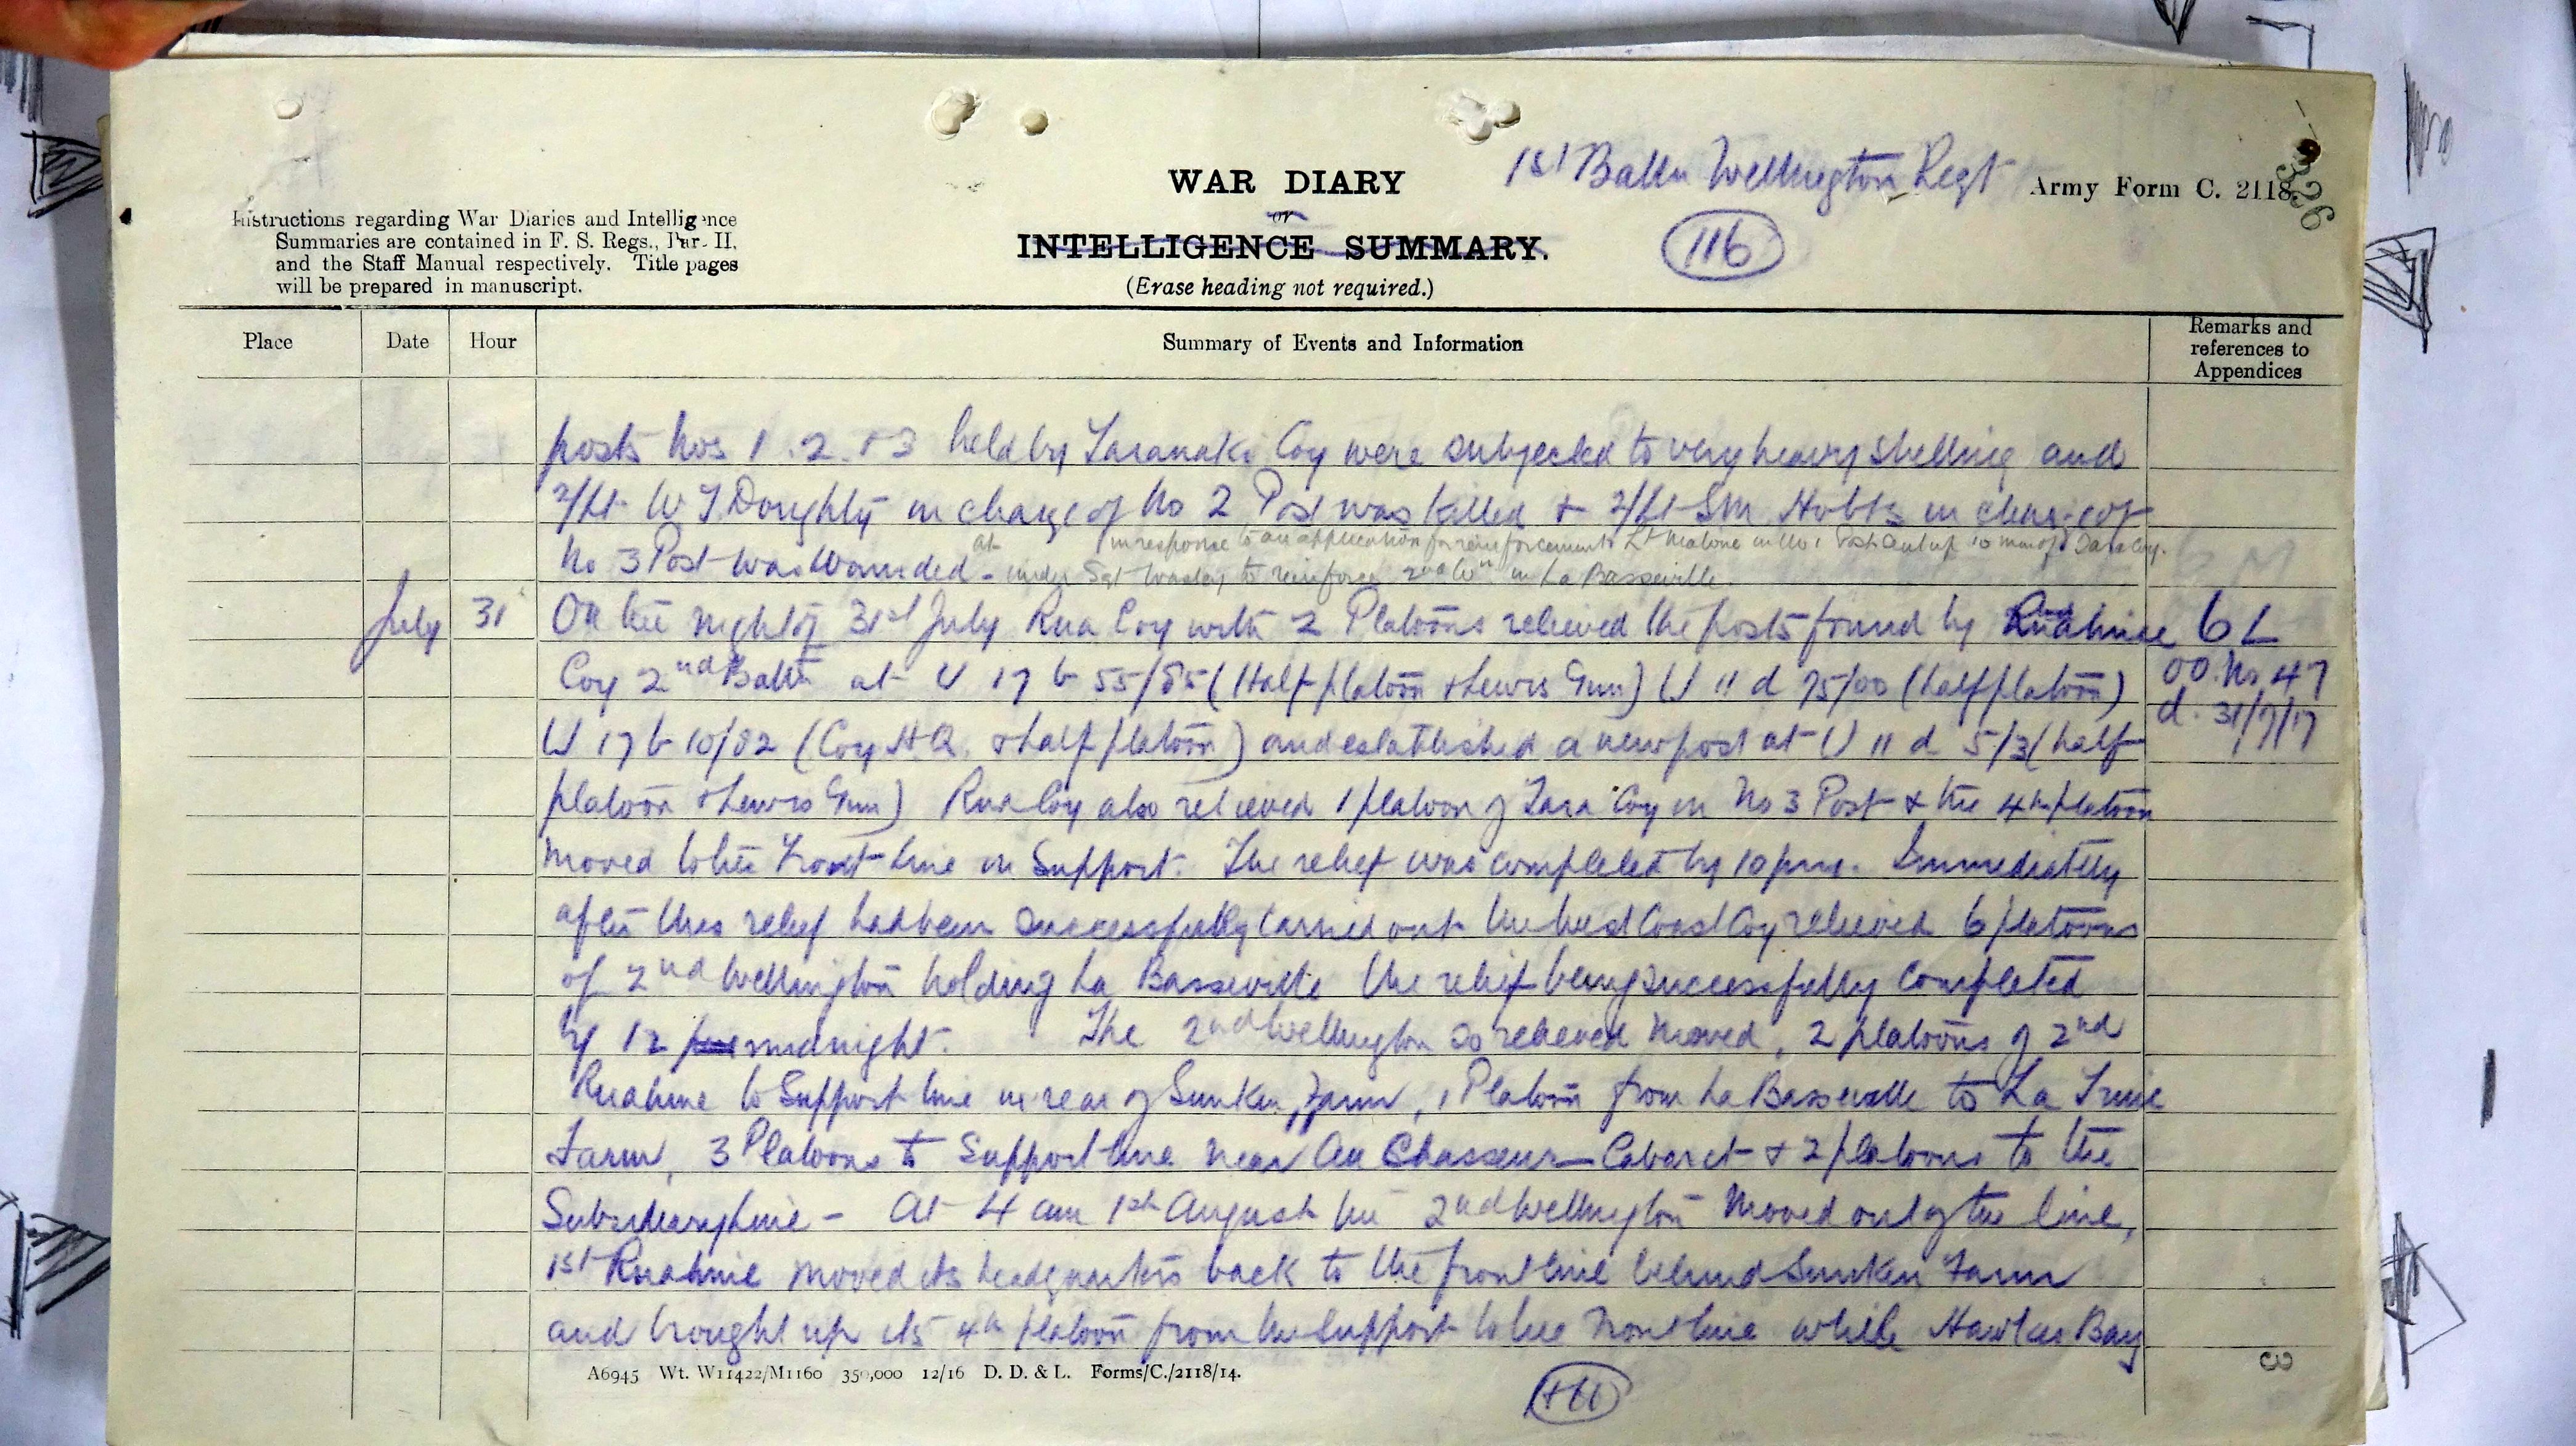 1st Battn Wellington Regt
Army Form C. 2118.
326
WAR DIARY
or
INTELLIGENCE SUMMARY.
(Erase heading not required.)
116
Instructions regarding War Diaries and Intelligence
Summaries are contained in F. S. Regs., Part II.
and the Staff Manual respectively. Title pages
will be prepared in manuscript.
Place Date Hour Summary of Events and Information Remarks and references to Appendices
posts Nos 1. 2. & 3 held by Taranaki Coy were subjected to very heavy shelling and
2/Lt W J Doughty in charge of No 2 Post was killed & 2/Lt S M Hobbs in charge of
No 3 Post was wounded - at in response to an application for reinforcements Lt Malone in No 1 Post sent up 10 men of Tara Coy.
under Sgt to reinforce 2nd Wn in La Basseville.
July 31 On the night of 31st July Rua Coy with 2 Platoons relieved the posts found by Ruahine 6 L
Coy 2nd Battn at U 17 b 55/85 (Half platoon & Lewis Gun) U 11 d 75/00 (half platoon) OO. No 47
d. 31/7/17
U 17 b 10/82 (Coy H.Q. & half platoon) and established a new post at U 11 d 5/3 (half
platoon & Lewis Gun) Rua Coy also relieved 1 platoon of Tara Coy in No 3 Post & the 4th platoon
moved to the Front line in Support. The relief was completed by 10 pm. Immediately
after this relief had been successfully carried out the West Coast Coy relieved 6 platoons
of 2nd Wellington holding La Basseville the relief being successfully completed
by 12 midnight. The 2nd Wellington so relieved moved, 2 platoons of 2nd
Ruahine to Support line in rear of Sunken Farm, 1 Platoon from La Basseville to La Truie
Farm, 3 Platoons to Support line near Au Chasseur Cabaret & 2 platoons to the
Subsidiary line - At 4 am 1st August the 2nd Wellington moved out of the line,
1st Ruahine moved its headquarters back to the front line behind Sunken Farm
and brought up its 4th platoon from the Support to the Front line while Hawkes Bay
A6945 Wt. W11422/M1160 350,000 12/16 D. D. & L. Forms/C./2118/14.
3